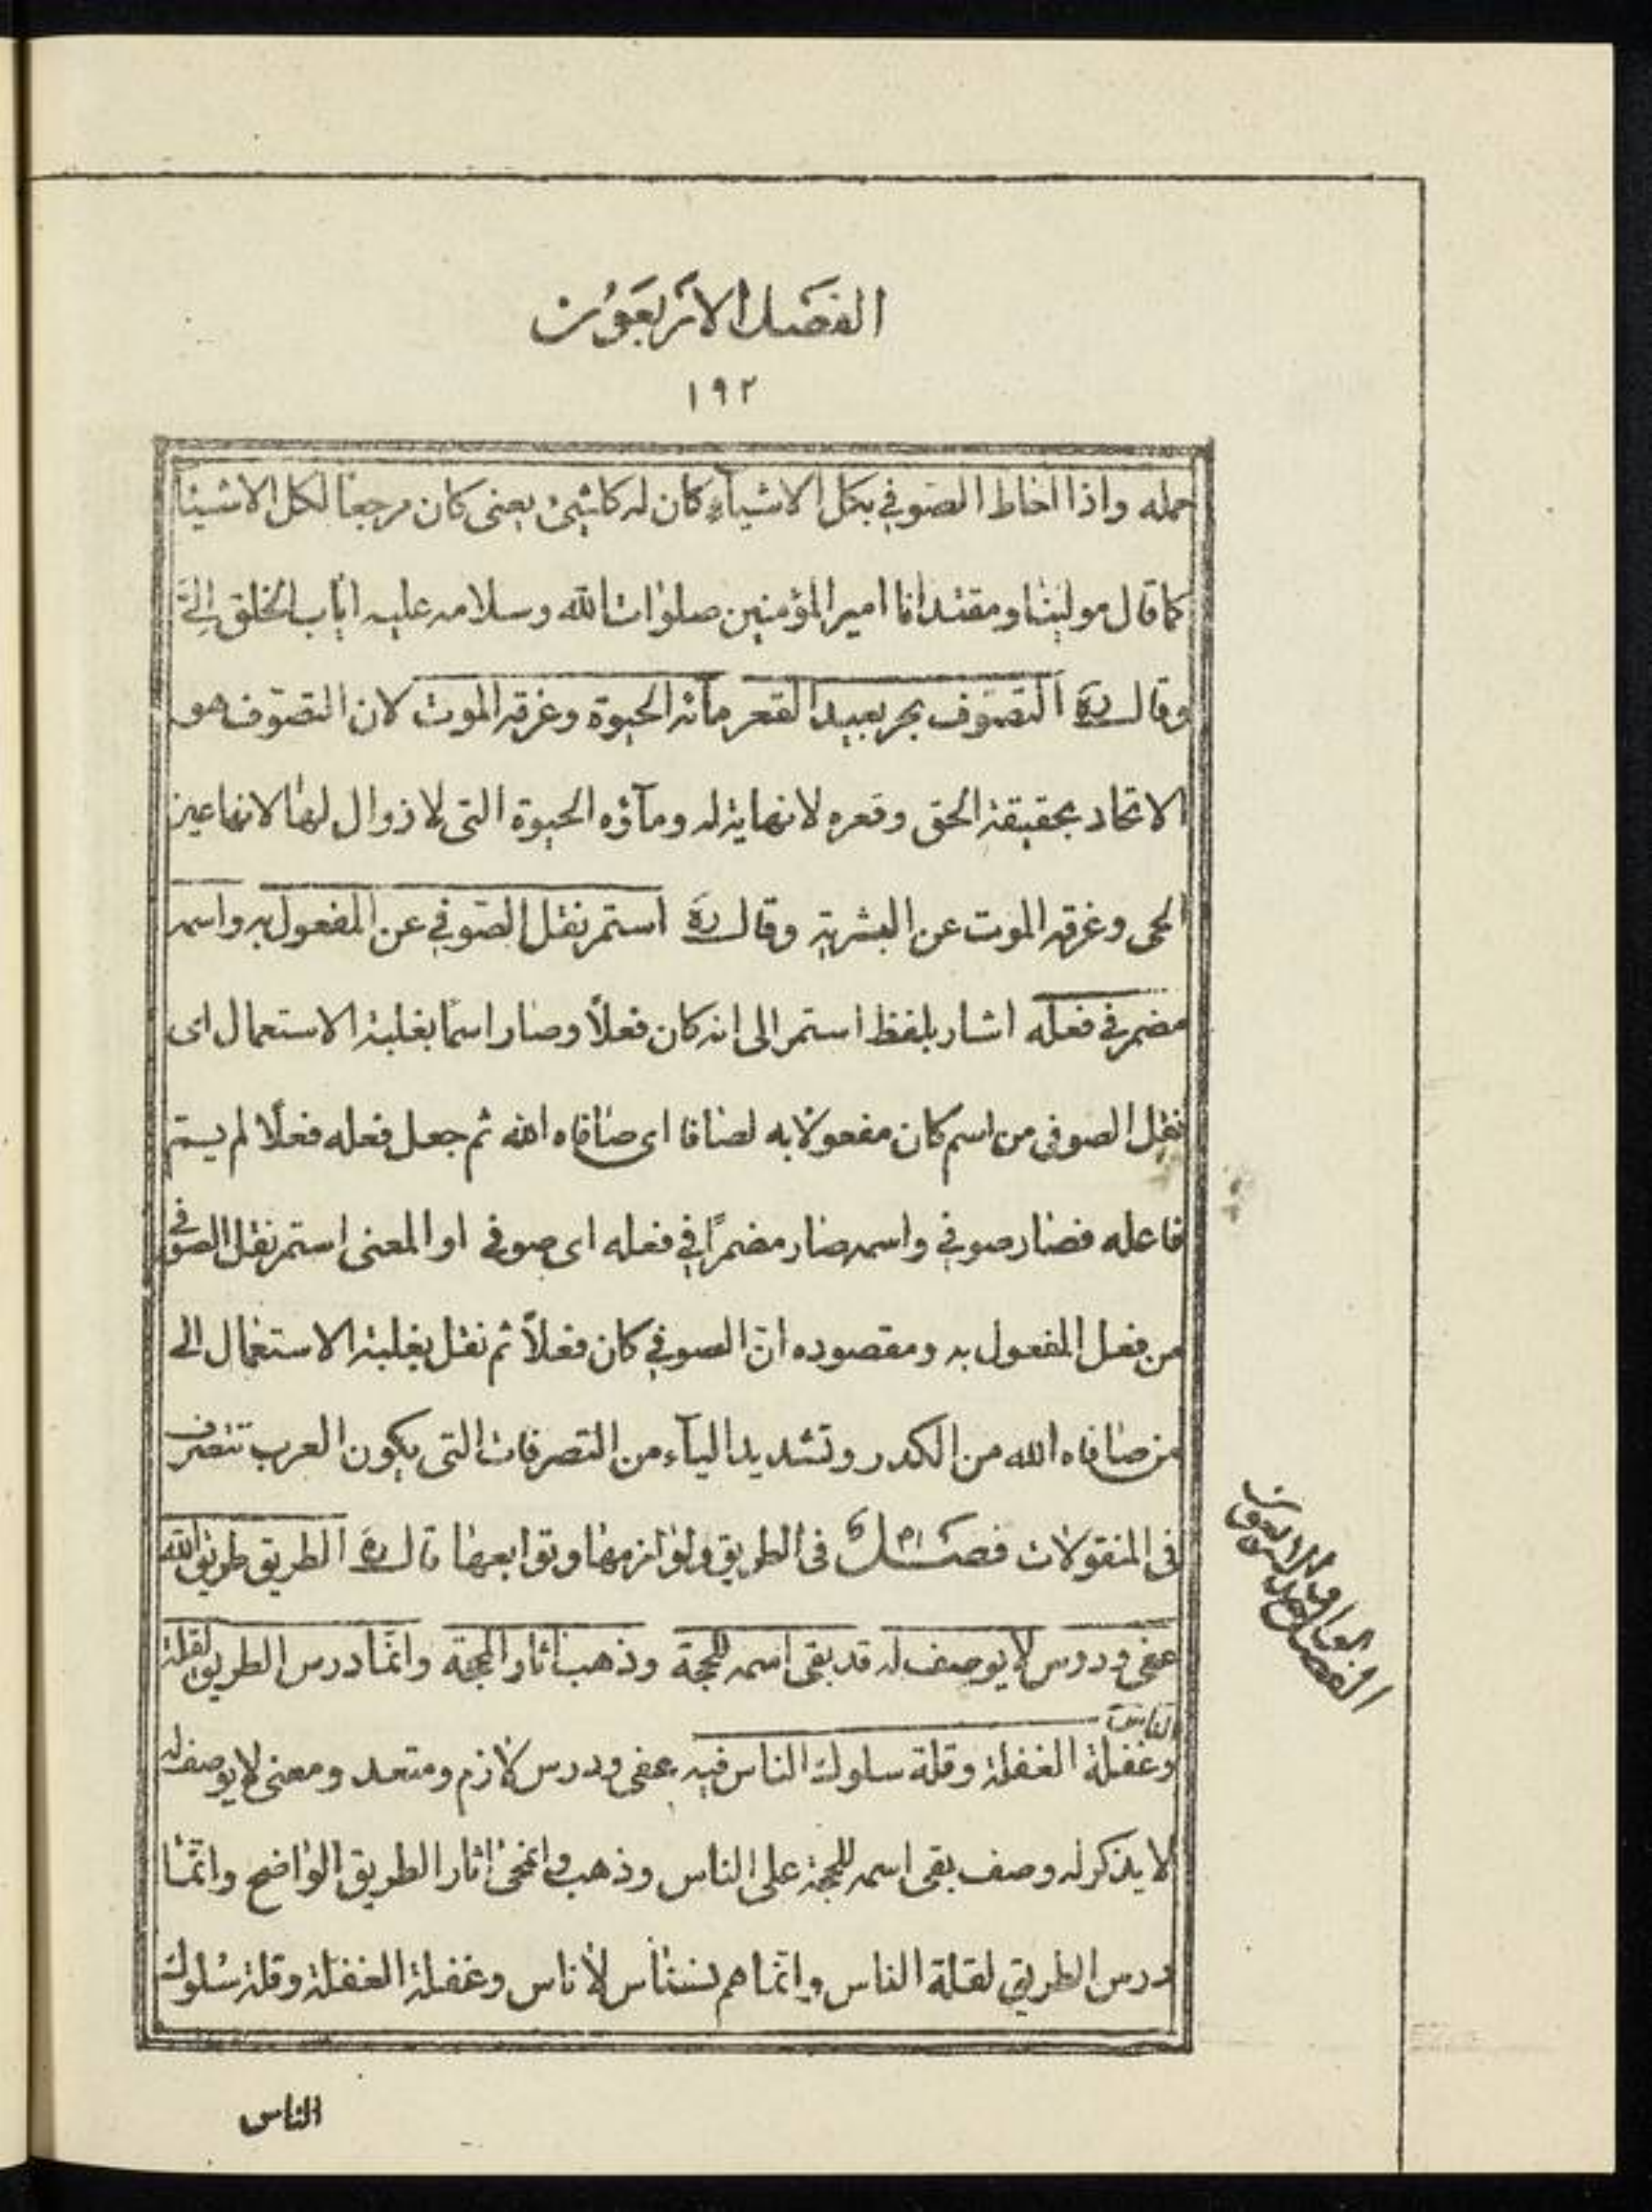 الفصل الاربعون
١٩٢
حمله واذا احاط الصوفي بكل الاشياء كان له كل شئ يعنى كان مرجعا لكل الاشيا
كما قال مولينا ومقتدانا امير المؤمنين صلوات الله وسلامه عليه اياب الخلق الىّ
وقال ره التصوف بحر بعيد القعر مائه الحيوة وغرقه الموت لان التصوف هو
الاتحاد بحقيقة الحق وقعره لانهاية له وماؤه الحيوة التى لا زوال لها لانها عين
الحى وغرقه الموت عن البشرية وقال ره استمر نقل الصوفي عن المفعول به واسمه
مضمر في فعله اشار بلفظ استمر الى انه كان فعلاً وصار اسمًا بغلبة الاستعمال اى
نقل الصوفى من اسم كان مفعولا به لصافا اى صافاه الله ثم جعل فعله فعلًا لم يسم
فاعله فصار صوفي واسمه صار مضمرًا في فعله اى صوفى او المعنى استمر نقل الصوفى
من فعل المفعول به ومقصوده انّ الصوفي كان فعلاً ثم نقل بغلبة الاستعمال الى
من صافاه الله من الكدر وتشديد الياء من التصرفات التى يكون العرب تتصرف
فى المنقولات فصل فى الطريق ولوازمها وتوابعها قال ره الطريق طريق الله
عفى ودرس لا يوصف له قد بقى اسمه للحجة وذهب اثار المحجة وانّما درس الطريق لقلة
الناس
وغفلة الغفلة وقلة سلوك الناس فيه عفى ودرس لازم ومتعد ومعنى لا يوصف له
لا يذكر له وصف بقى اسمه للحجة على الناس وذهب وانمحى اثار الطريق الواضح وانّما
درس الطريق لقلة الناس وانّما هم نسناس لا ناس وغفلة الغفلة وقلة سلوك
الناس
الفصل الاربعون